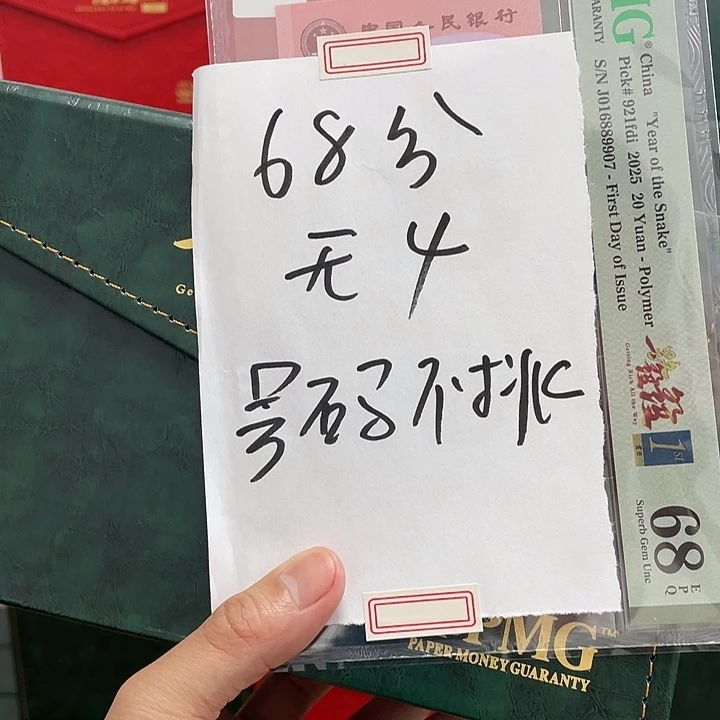 68分
无4
号码不挑
中国人民银行
MG®
GUARANTY
China "Year of the Snake"
Pick# 921fdi 2025 20 Yuan - Polymer
S/N J016889907 - First Day of Issue
Getting Rich All the Way
1st
首日
68
EPQ
Superb Gem Unc
PMG™
PAPER MONEY GUARANTY